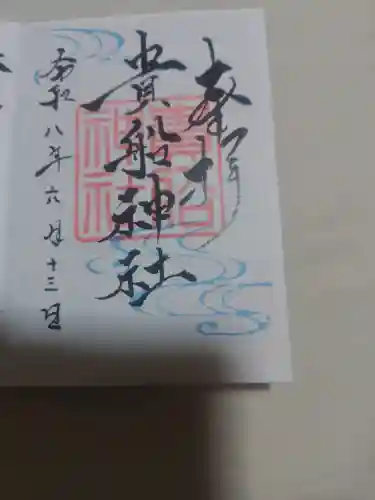 奉拝
貴船神社
令和八年六月十三日